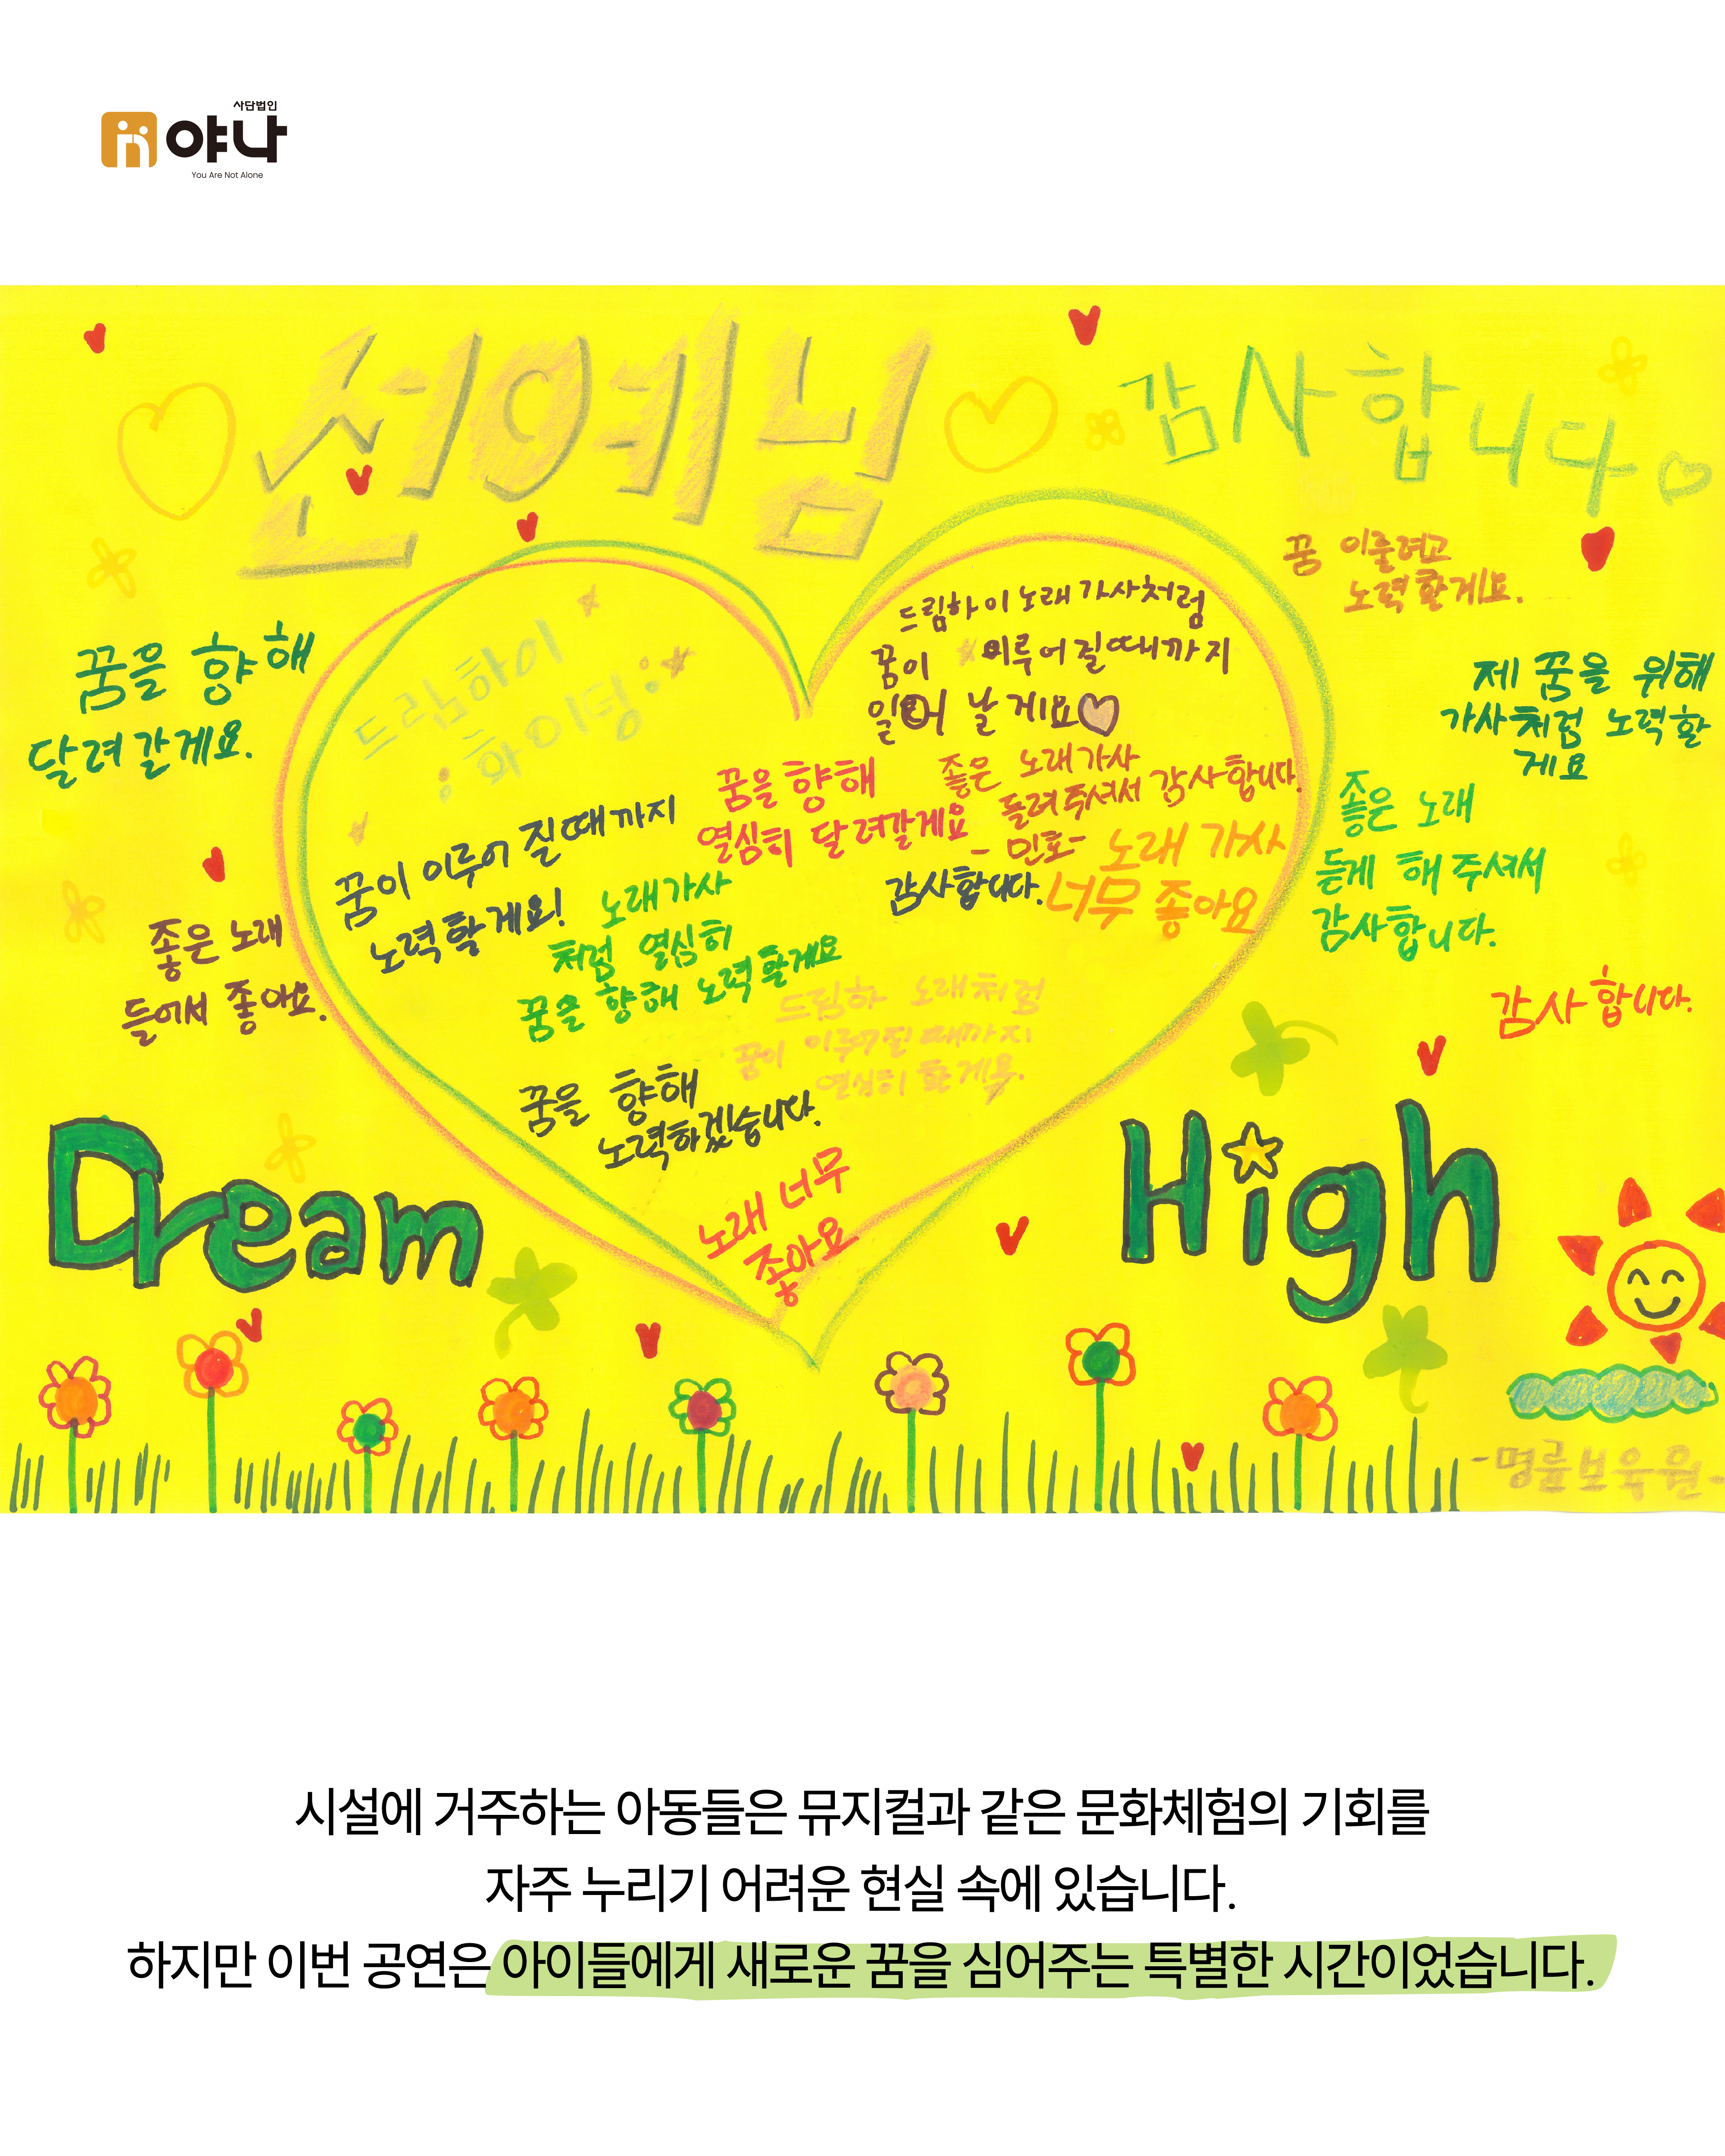 사단법인
야나
You Are Not Alone
선예님
감사합니다
꿈 이룰려고
노력할게요.
꿈을 향해
달려갈게요.
드림하이
화이팅
드림하이 노래 가사처럼
꿈이 이루어질때까지
일어 날게요
제 꿈을 위해
가사처럼 노력할
게요
꿈을 향해
열심히 달려갈게요
좋은 노래가사
들려주셔서 감사합니다.
-민호-
노래 가사
너무 좋아요
감사합니다.
좋은 노래
듣게 해주셔서
감사합니다.
꿈이 이루어질때까지
노력할게요!
노래가사
처럼 열심히
꿈을 향해 노력할게요
좋은 노래
들어서 좋아요.
드림하 노래처럼
꿈이 이루어질때까지
열심히 할게요.
감사합니다.
꿈을 향해
노력하겠습니다.
노래 너무
좋아요
Dream High
-명륜보육원-
시설에 거주하는 아동들은 뮤지컬과 같은 문화체험의 기회를
자주 누리기 어려운 현실 속에 있습니다.
하지만 이번 공연은 아이들에게 새로운 꿈을 심어주는 특별한 시간이었습니다.